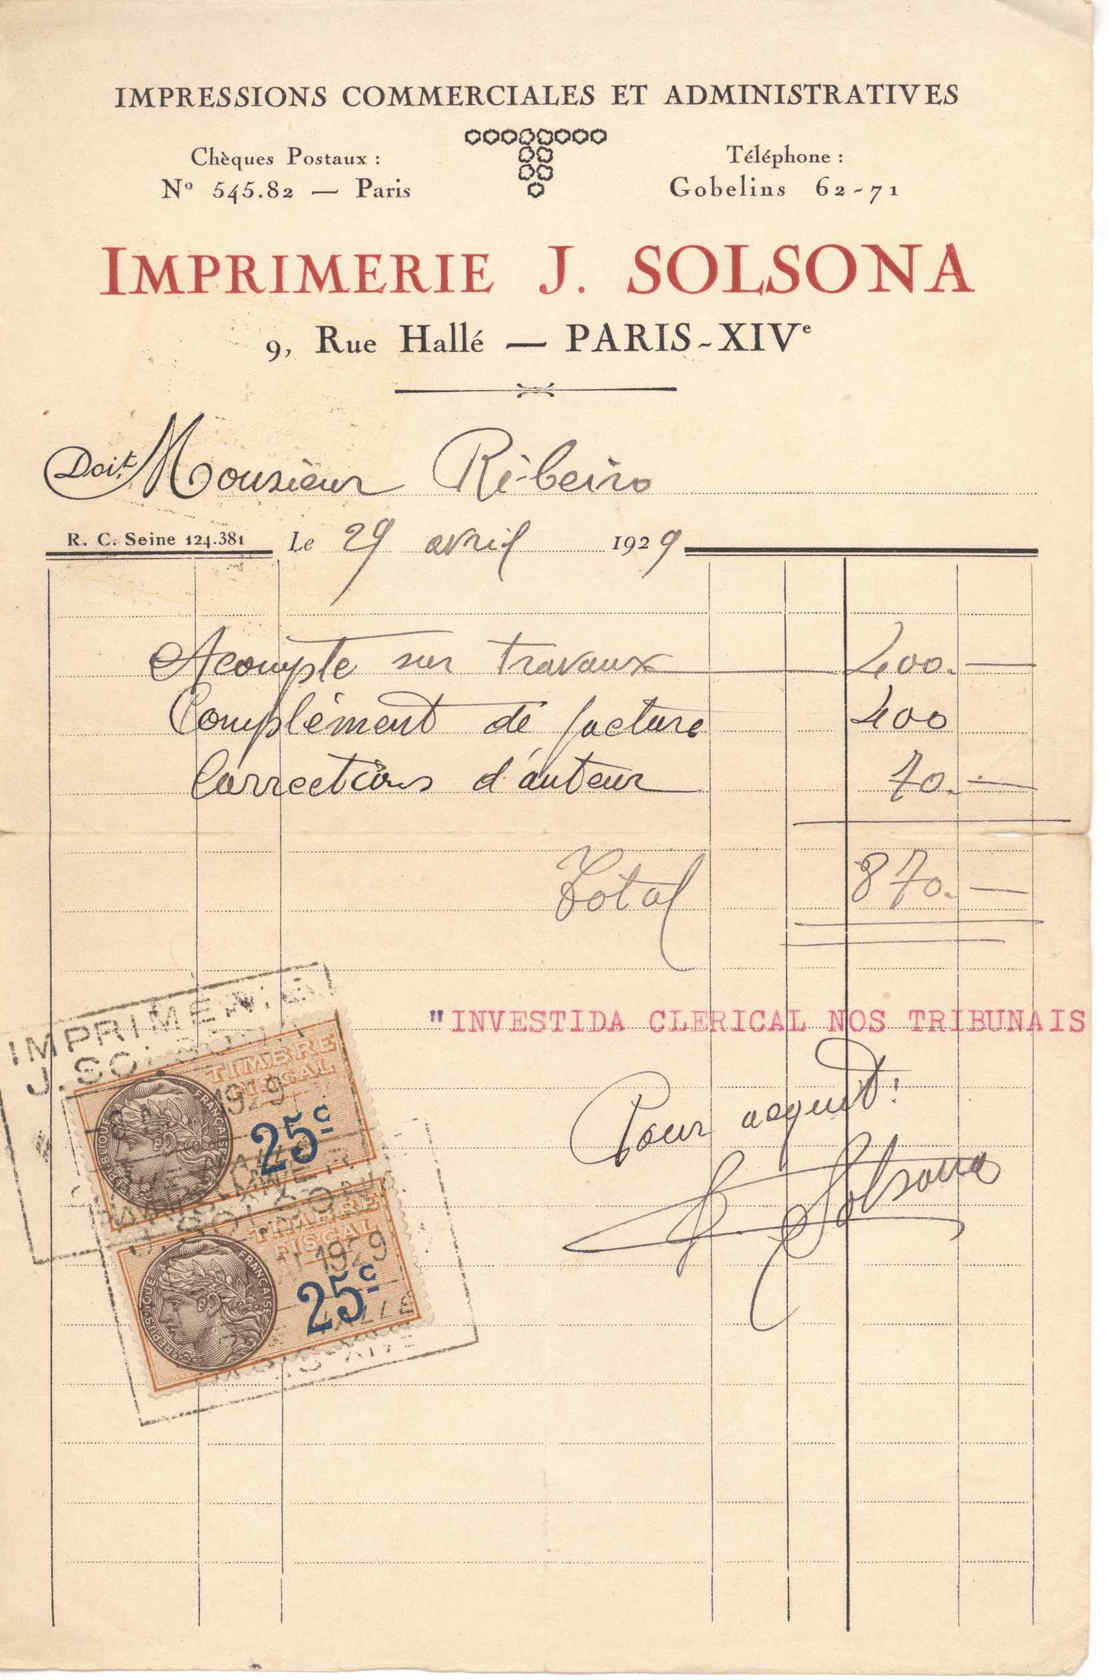 IMPRESSIONS COMMERCIALES ET ADMINISTRATIVES
Chèques Postaux :
Nº 545.82 — Paris
Téléphone :
Gobelins 62-71
IMPRIMERIE J. SOLSONA
9, Rue Hallé — PARIS-XIVᵉ
Doit Monsieur Ribeiro
R. C. Seine 124.381 Le 29 avril 1929
Acompte sur travaux — 400.—
Complément de facture 400
Corrections d'auteur 70.—
Total 870.—
"INVESTIDA CLERICAL NOS TRIBUNAIS
Pour acquit:
Solsona
IMPRIMERIE
J. SOLSONA
TIMBRE
FISCAL
1929
RÉPUBLIQUE FRANÇAISE
25c
J. SOLSONA
TIMBRE
FISCAL
1929
RÉPUBLIQUE FRANÇAISE
25c